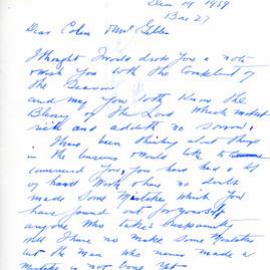 Dec 19 1959
Box 27
Dear Colin and
I thought I would drop you a note
wish you both the Compliments of
the Season
and may you both know the
Blessing of the Lord which maketh
rich and addeth no sorrow.
I have been thinking about things
in the business would like to
Commend you, you have had a lot
of hard work there no doubt
made some mistakes which you
have found out for yourself
anyone who takes
will have no make some mistakes
but the man who never made a
mistake is not born yet